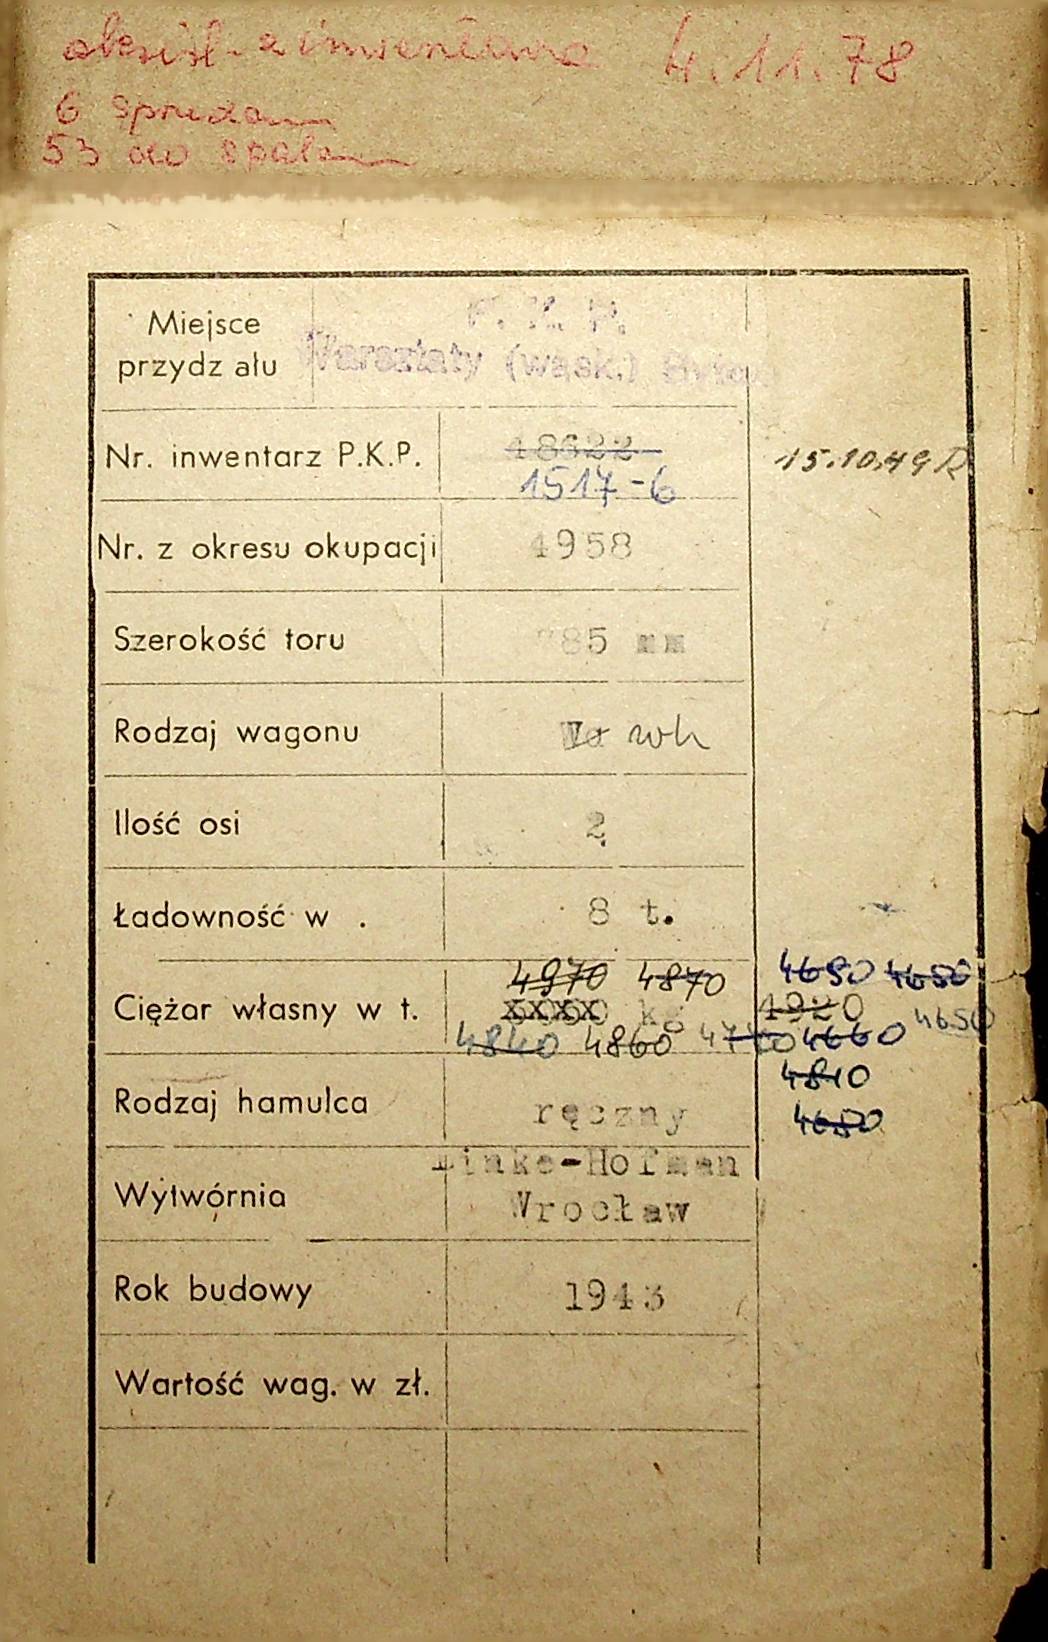 4.11.78
6
53 do
Miejsce
przydz ału
P. K. P.
Warsztaty (wąsk.)
Nr. inwentarz P.K.P. 18622 15.10.49 R
1517-6
Nr. z okresu okupacji 4958
Szerokość toru 785 mm
Rodzaj wagonu wh
Ilość osi 2
Ładowność w . 8 t.
4970 4870 4690 4650
Ciężar własny w t. xxxx kg 4920 4650
4840 4860 4660
4810
Rodzaj hamulca ręczny
Linke-Hofman
Wytwórnia Wrocław
Rok budowy 1943
Wartość wag. w zł.